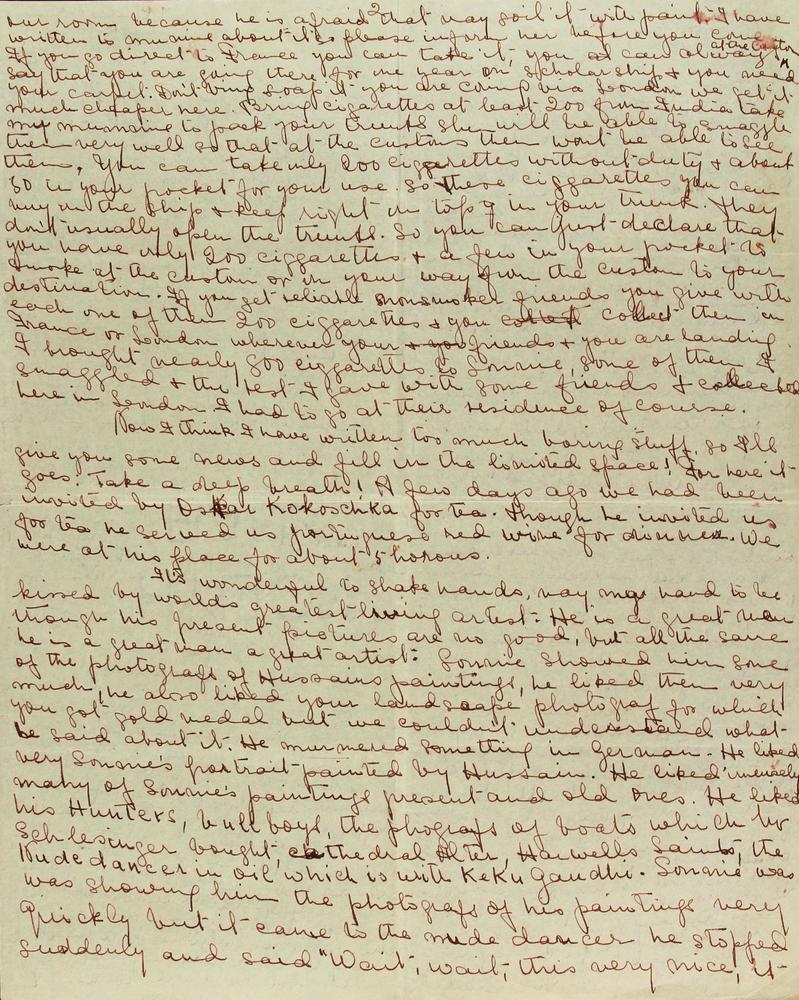 our room because he is afraid that may soil it with paint. I have
written to mummie about it so please inform her before you come.
If you go direct to France you can take it, you can always
at the custom
say that you are going there for one year on scholarship & you need
your carpet. Don't bring soap if you are coming via London we get it
much cheaper here. Bring cigarettes at least 200 from India take
my mummie to pack your trunks she will be able to smaggle
them very well so that at the customs then wont be able to see
them. You can take only 200 ciggerettes without duty & about
50 in your pocket for your use. So these ciggarettes you can
buy on the ship & keep right on top of in your trunk. They
don't usually open the trunks. So you can just declare that
you have only 200 ciggarettes & a few in your pocket to
smoke at the custom or in your way from the custom to your
destination. If you get reliable nonsmoker friends you give with
each one of them 200 ciggarettes & you collect them in
France or London wherever your friends & you are landing.
I brought nearly 800 ciggarettes to Sonnie, some of them I
smaggled & the rest I gave with some friends & collected
here in London I had to go at their residence of course.
Now I think I have written too much boring stuff, so I'll
give you some news and fill in the limited space! For here it
goes. Take a deep breath! A few days ago we had been
invited by Oskar Kokoschka for tea. Though he invited us
for tea he served us portuguese red wine for dinner. We
were at his place for about 5 hours.
It's wonderful to shake hands, nay my hand to be
kissed by worlds greatest living artist. He is a great man
though his present pictures are no good, but all the same
he is a great man a great artist. Sonnie showed him some
of the photografs of Hussains paintings, he liked them very
much, he also liked your landscape photograf for which
you got gold medal but we couldn't understand what
he said about it. He murmered something in German. He liked
very Sonnie's portrait painted by Hussain. He liked imensely
many of Sonnie's paintings present and old ones. He liked
his Hunters, bull boys, the phografs of boats which Mr
Schlesinger bought, cathedral Alter, Harwells Saints, the
Nude dancer in oil which is with Keku Gandhi. Sonnie was
was showing him the photografs of his paintings very
quickly but it came to the nude dancer he stopped
suddenly and said "Wait, wait, this very nice, it